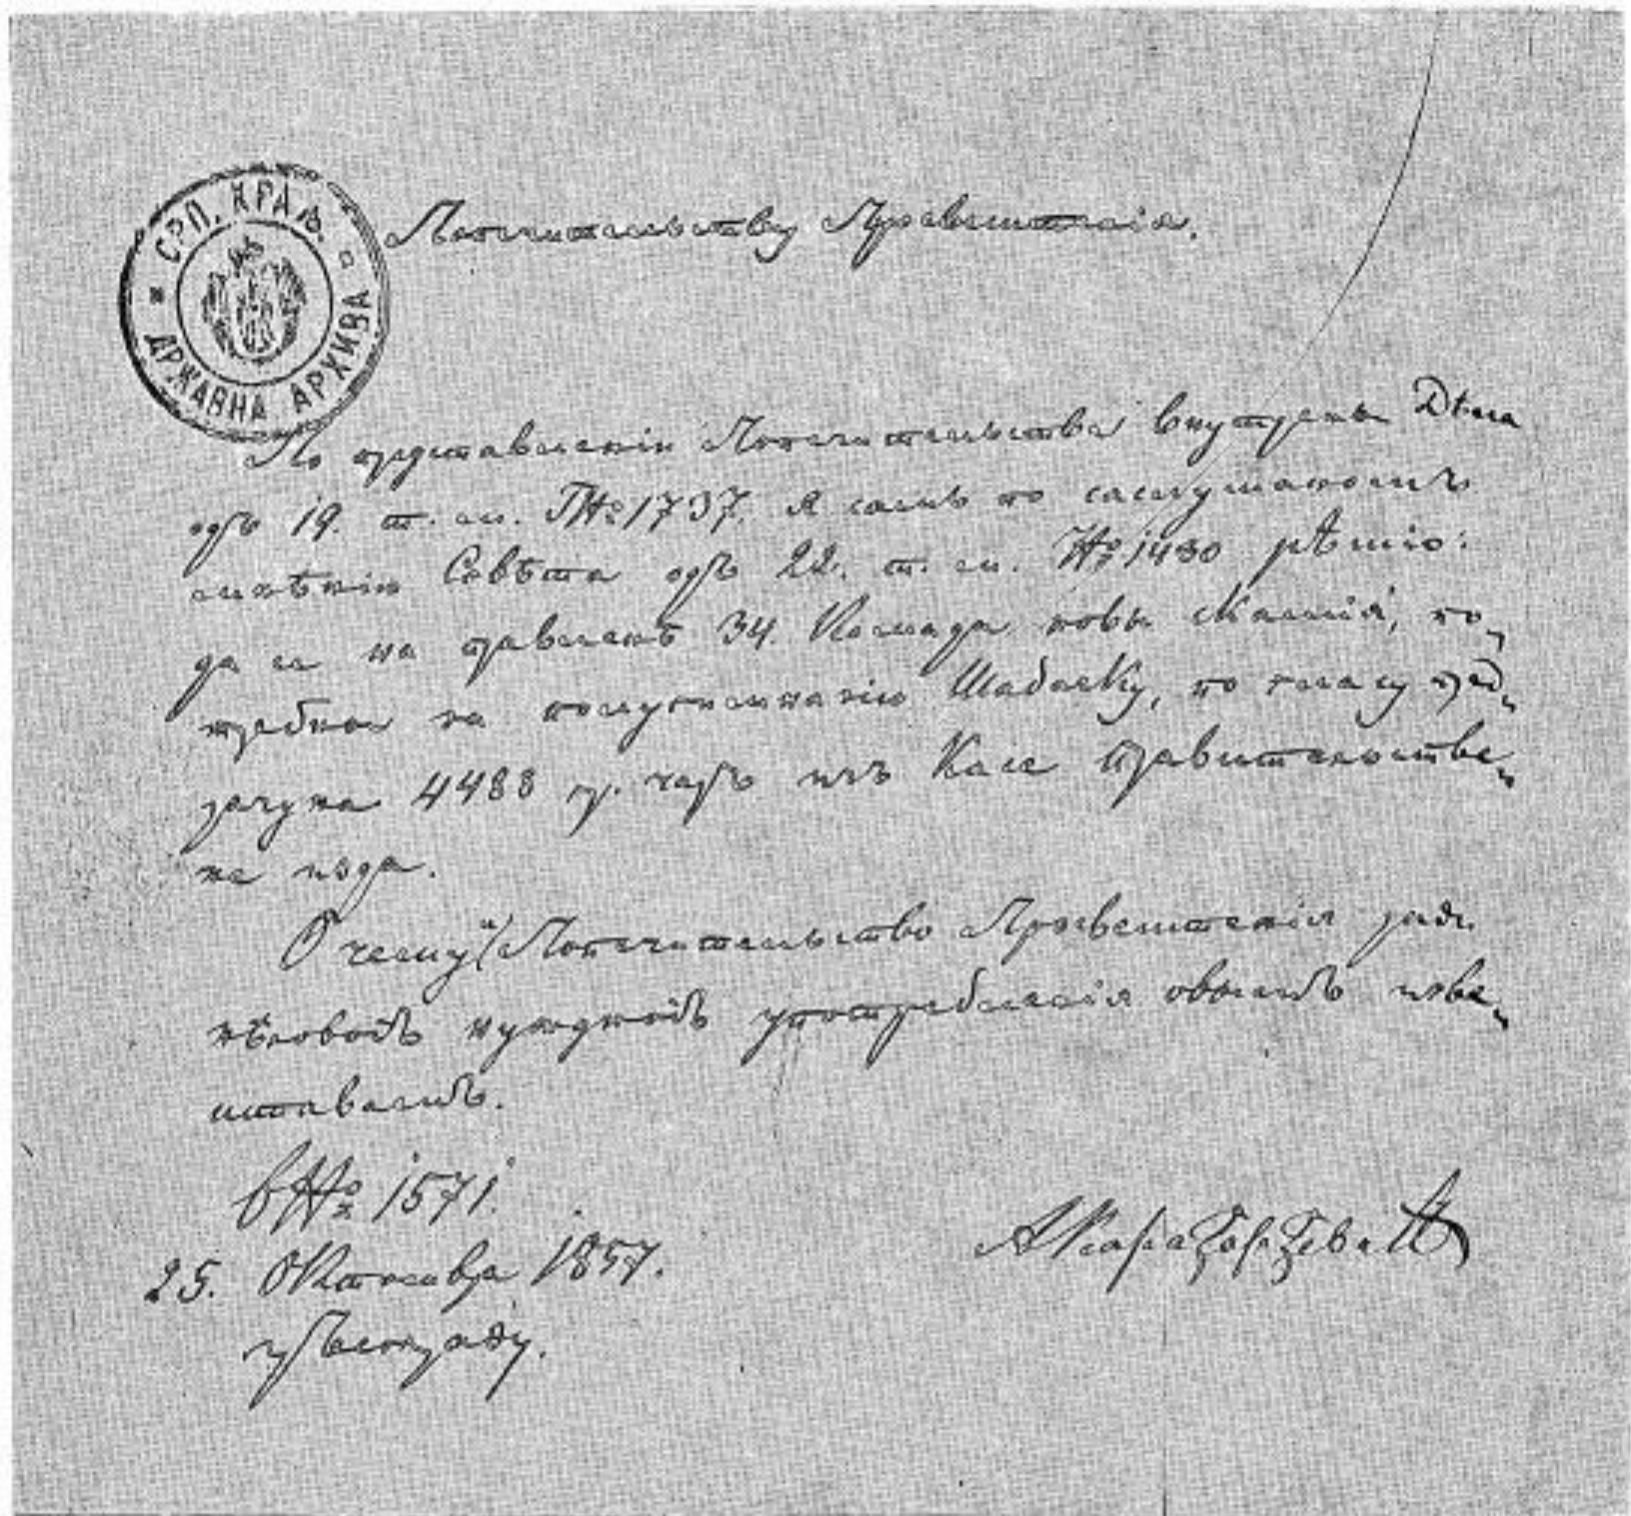 СРП. КРАЉ.
ДРЖАВНА АРХИВА
Попечительству Просвештенія.
По представленію Попечительства Внутрены Дѣла
одъ 19. т. м. ПNo 1737. я самь по саслушаномъ
мнѣнію Совѣта одъ 22. т. м. No 1430 рѣшіо:
да се на правленѣ 34. Комада новы скамія, по„
требны за полугимназію Шабачку, по гласу пред„
рачуна 4488 гр. чарш. изъ Касе правителстве„
не изда.
О чему Попечительство Просвештенія ради
нѣговогъ нуждногъ употребленія овымъ изве„
штавамъ.
ВNo 1571.
25. Октомвра 1857.
у Београду.
А Карађорђевић